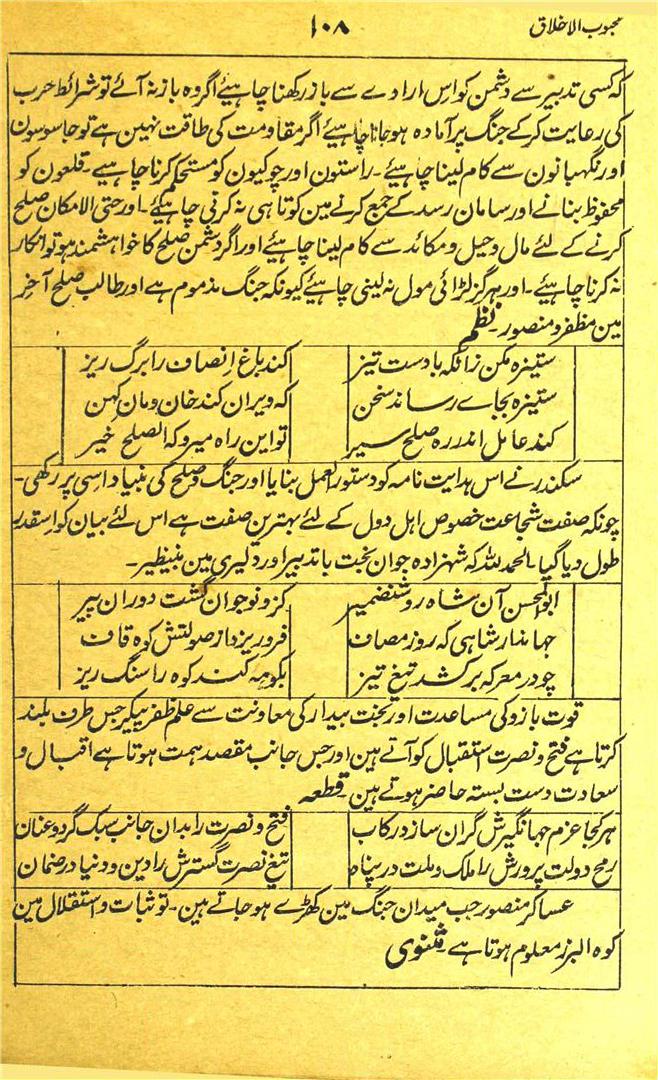 محبوب الاخلاق
۱۰۸
کہ کسی تدبیر سے دشمن کو اس ارادے سے باز رکھنا چاہیے اگر وہ باز نہ آئے تو شرائط حرب
کی رعایت کرکے جنگ پر آمادہ ہو جانا چاہیے اگر مقاومت کی طاقت نہین ہے تو جاسوسون
اور نگہبانون سے کام لینا چاہیے۔ راستون اور چوکیون کو مستحکم کرنا چاہیے۔ قلعون کو
محفوظ بنانے اور سامان رسد کے جمع کرنے مین کوتاہی نہ کرنی چاہیئے۔ اور حتی الامکان صلح
کرنے کے لئے مال و حیل و مکائد سے کام لینا چاہیئے اور اگر دشمن صلح کا خواہشمند ہو تو انکار
نہ کرنا چاہیئے۔ اور ہرگز لڑائی مول نہ لینی چاہیئے کیونکہ جنگ مذموم ہے اور طالب صلح آخر
مین مظفر و منصور۔ نظم
ستیزہ مکن زانکہ باد ست تیز
کند باغ انصاف را برگ ریز
ستیزہ بجاے رساند سخن
کہ ویران کند خان و مان کہن
کند عامل اندر رہ صلح سیر
تو این راہ میرو کہ الصلح خیر
سکندر نے اس ہدایت نامہ کو دستور العمل بنایا اور جنگ و صلح کی بنیاد اسی پر رکھی۔
چونکہ صفت شجاعت خصوص اہل دول کے لئے بہترین صفت ہے اس لئے بیان کو اسقدر
طول دیا گیا۔ الحمد للہ کہ شہزادہ جوان بخت با تدبیر اور دلیری مین بینظیر۔
ابو المحسن آن شاہ روشنضمیر
کزو نوجوان گشت دوران پیر
جہاندار شاہی کہ روز مصاف
فرو ریزد از صولتش کوہ قاف
چو در معرکہ بر کشد تیغ تیز
بکوہہ کند کوہ را سنگ ریز
قوت بازو کی مساعدت اور بخت بیدار کی معاونت سے علم ظفر پیکر جس طرف بلند
کرتا ہے فتح و نصرت استقبال کو آتے ہین اور جس جانب مقصد ہمت ہوتا ہے اقبال و
سعادت دست بستہ حاضر ہوتے ہین۔ قطعہ
ہر کجا عزم جہانگیرش گران سازد رکاب
فتح و نصرت را بدان جانب سبک گردد عنان
رمح دولت پرورش را ملک و ملت در پناہ
تیغ نصرت گسترش را دین و دنیا در ضمان
عساکر منصور جب میدان جنگ مین کھڑے ہو جاتے ہین۔ تو ثبات و استقلال مین
کوہ البرز معلوم ہوتا ہے۔ مثنوی